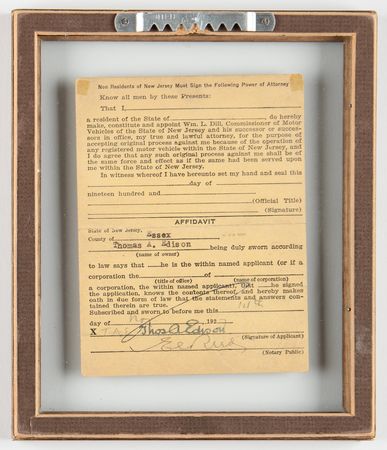 Non Residents of New Jersey Must Sign the Following Power of Attorney
Know all men by these Presents:
That I,
a resident of the State of do hereby
make, constitute and appoint Wm. L. Dill, Commissioner of Motor
Vehicles of the State of New Jersey and his successor or succes-
sors in office, my true and lawful attorney, for the purpose of
accepting original process against me because of the operation of
any registered motor vehicle within the State of New Jersey, and
I do agree that any such original process against me shall be of
the same force and effect as if the same had been served upon
me within the State of New Jersey.
In witness whereof I have hereunto set my hand and seal this
day of
nineteen hundred and
(Official Title)
(Signature)
AFFIDAVIT
State of New Jersey,
County of Essex
Thomas A. Edison being duly sworn according
(name of owner)
to law says that he is the within named applicant (or if a
corporation the of
(title of office) (name of corporation)
a corporation, the within named applicant), that he signed
the application, knows the contents thereof, and hereby makes
oath in due form of law that the statements and answers con-
tained therein are true.
Subscribed and sworn to before me this
day of 192
X Thos A Edison
(Signature of Applicant)
(Notary Public)